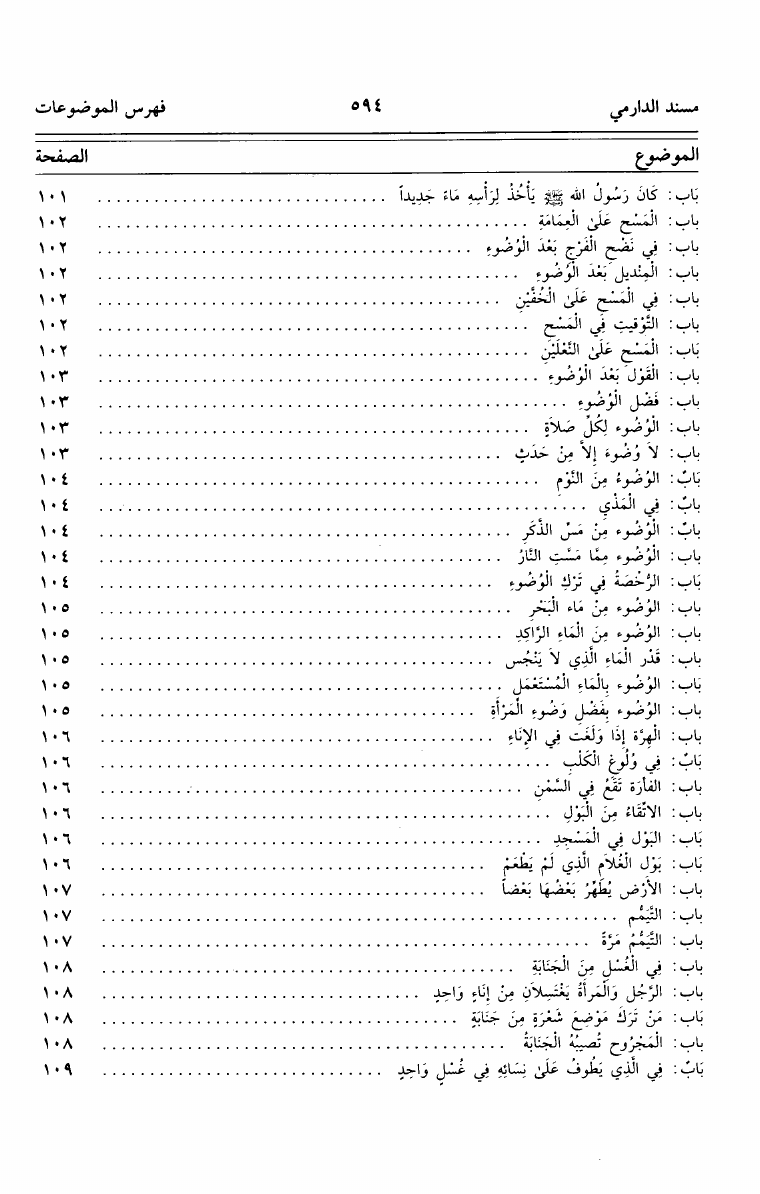 مسند الدارمي ٥٩٤ فهرس الموضوعات
الموضوع الصفحة
بَاب: كَانَ رَسُولُ الله ﷺ يَأْخُذُ لِرَأْسِهِ مَاءً جَدِيداً ........ ١٠١
باب: الْمَسْحِ عَلَىٰ الْعِمَامَةِ ........ ١٠٢
باب: فِي نَضْحِ الْفَرْجِ بَعْدَ الْوُضُوءِ ........ ١٠٢
باب: الْمِنْديلِ بَعْدَ الْوُضُوءِ ........ ١٠٢
باب: فِي الْمَسْحِ عَلَىٰ الْخُفَّيْنِ ........ ١٠٢
باب: التَّوْقِيتِ فِي الْمَسْحِ ........ ١٠٢
بَاب: الْمَسْحِ عَلَىٰ النَّعْلَيْنِ ........ ١٠٢
باب: الْقَوْلِ بَعْدَ الْوُضُوءِ ........ ١٠٣
باب: فَضْلِ الْوُضُوءِ ........ ١٠٣
باب: الْوُضُوءِ لِكُلِّ صَلاَةٍ ........ ١٠٣
باب: لاَ وُضُوءَ إِلاَّ مِنْ حَدَثٍ ........ ١٠٣
بَابٌ: الوُضُوءُ مِنَ النَّوْمِ ........ ١٠٤
بابٌ: فِي الْمَذْيِ ........ ١٠٤
بابٌ: الْوُضُوءِ مِنْ مَسِّ الذَّكَرِ ........ ١٠٤
باب: الْوُضُوءِ مِمَّا مَسَّتِ النَّارُ ........ ١٠٤
بَاب: الرُّخْصَةُ فِي تَرْكِ الْوُضُوءِ ........ ١٠٤
باب: الوُضُوءِ مِنْ مَاءِ الْبَحْرِ ........ ١٠٥
باب: الوُضُوءِ مِنَ الْمَاءِ الرَّاكِدِ ........ ١٠٥
باب: قَدْرِ الْمَاءِ الَّذِي لاَ يَنْجُس ........ ١٠٥
بَاب: الوُضُوءِ بِالْمَاءِ الْمُسْتَعْمَلِ ........ ١٠٥
باب: الوُضُوءِ بِفَضْلِ وَضُوءِ الْمَرْأَةِ ........ ١٠٥
باب: الْهِرَّة إِذَا وَلَغَت فِي الإِنَاءِ ........ ١٠٦
بَابٌ: فِي وُلُوغِ الْكَلْبِ ........ ١٠٦
باب: الفأرَة تَقَعُ فِي السَّمْنِ ........ ١٠٦
باب: الاتِّقَاءُ مِنَ الْبَوْلِ ........ ١٠٦
بَاب: البَوْلِ فِي الْمَسْجِدِ ........ ١٠٦
بَاب: بَوْلِ الْغُلاَمِ الَّذِي لَمْ يَطْعَمْ ........ ١٠٦
باب: الأَرْضِ يُطَهِّرُ بَعْضُهَا بَعْضاً ........ ١٠٧
باب: التَّيَمُّمِ ........ ١٠٧
باب: التَّيَمُّمُ مَرَّةً ........ ١٠٧
باب: فِي الْغُسْلِ مِنَ الْجَنَابَةِ ........ ١٠٨
باب: الرَّجُلِ وَالْمَرأَةُ يَغْتَسِلاَنِ مِنْ إِنَاءٍ وَاحِدٍ ........ ١٠٨
بَاب: مَنْ تَرَكَ مَوْضِعَ شَعْرَةٍ مِنَ جَنَابَةٍ ........ ١٠٨
باب: الْمَجْرُوحِ تُصيبُهُ الْجَنَابَةُ ........ ١٠٨
بَابٌ: فِي الَّذِي يَطُوفُ عَلَىٰ نِسَائِهِ فِي غُسْلٍ وَاحِدٍ ........ ١٠٩